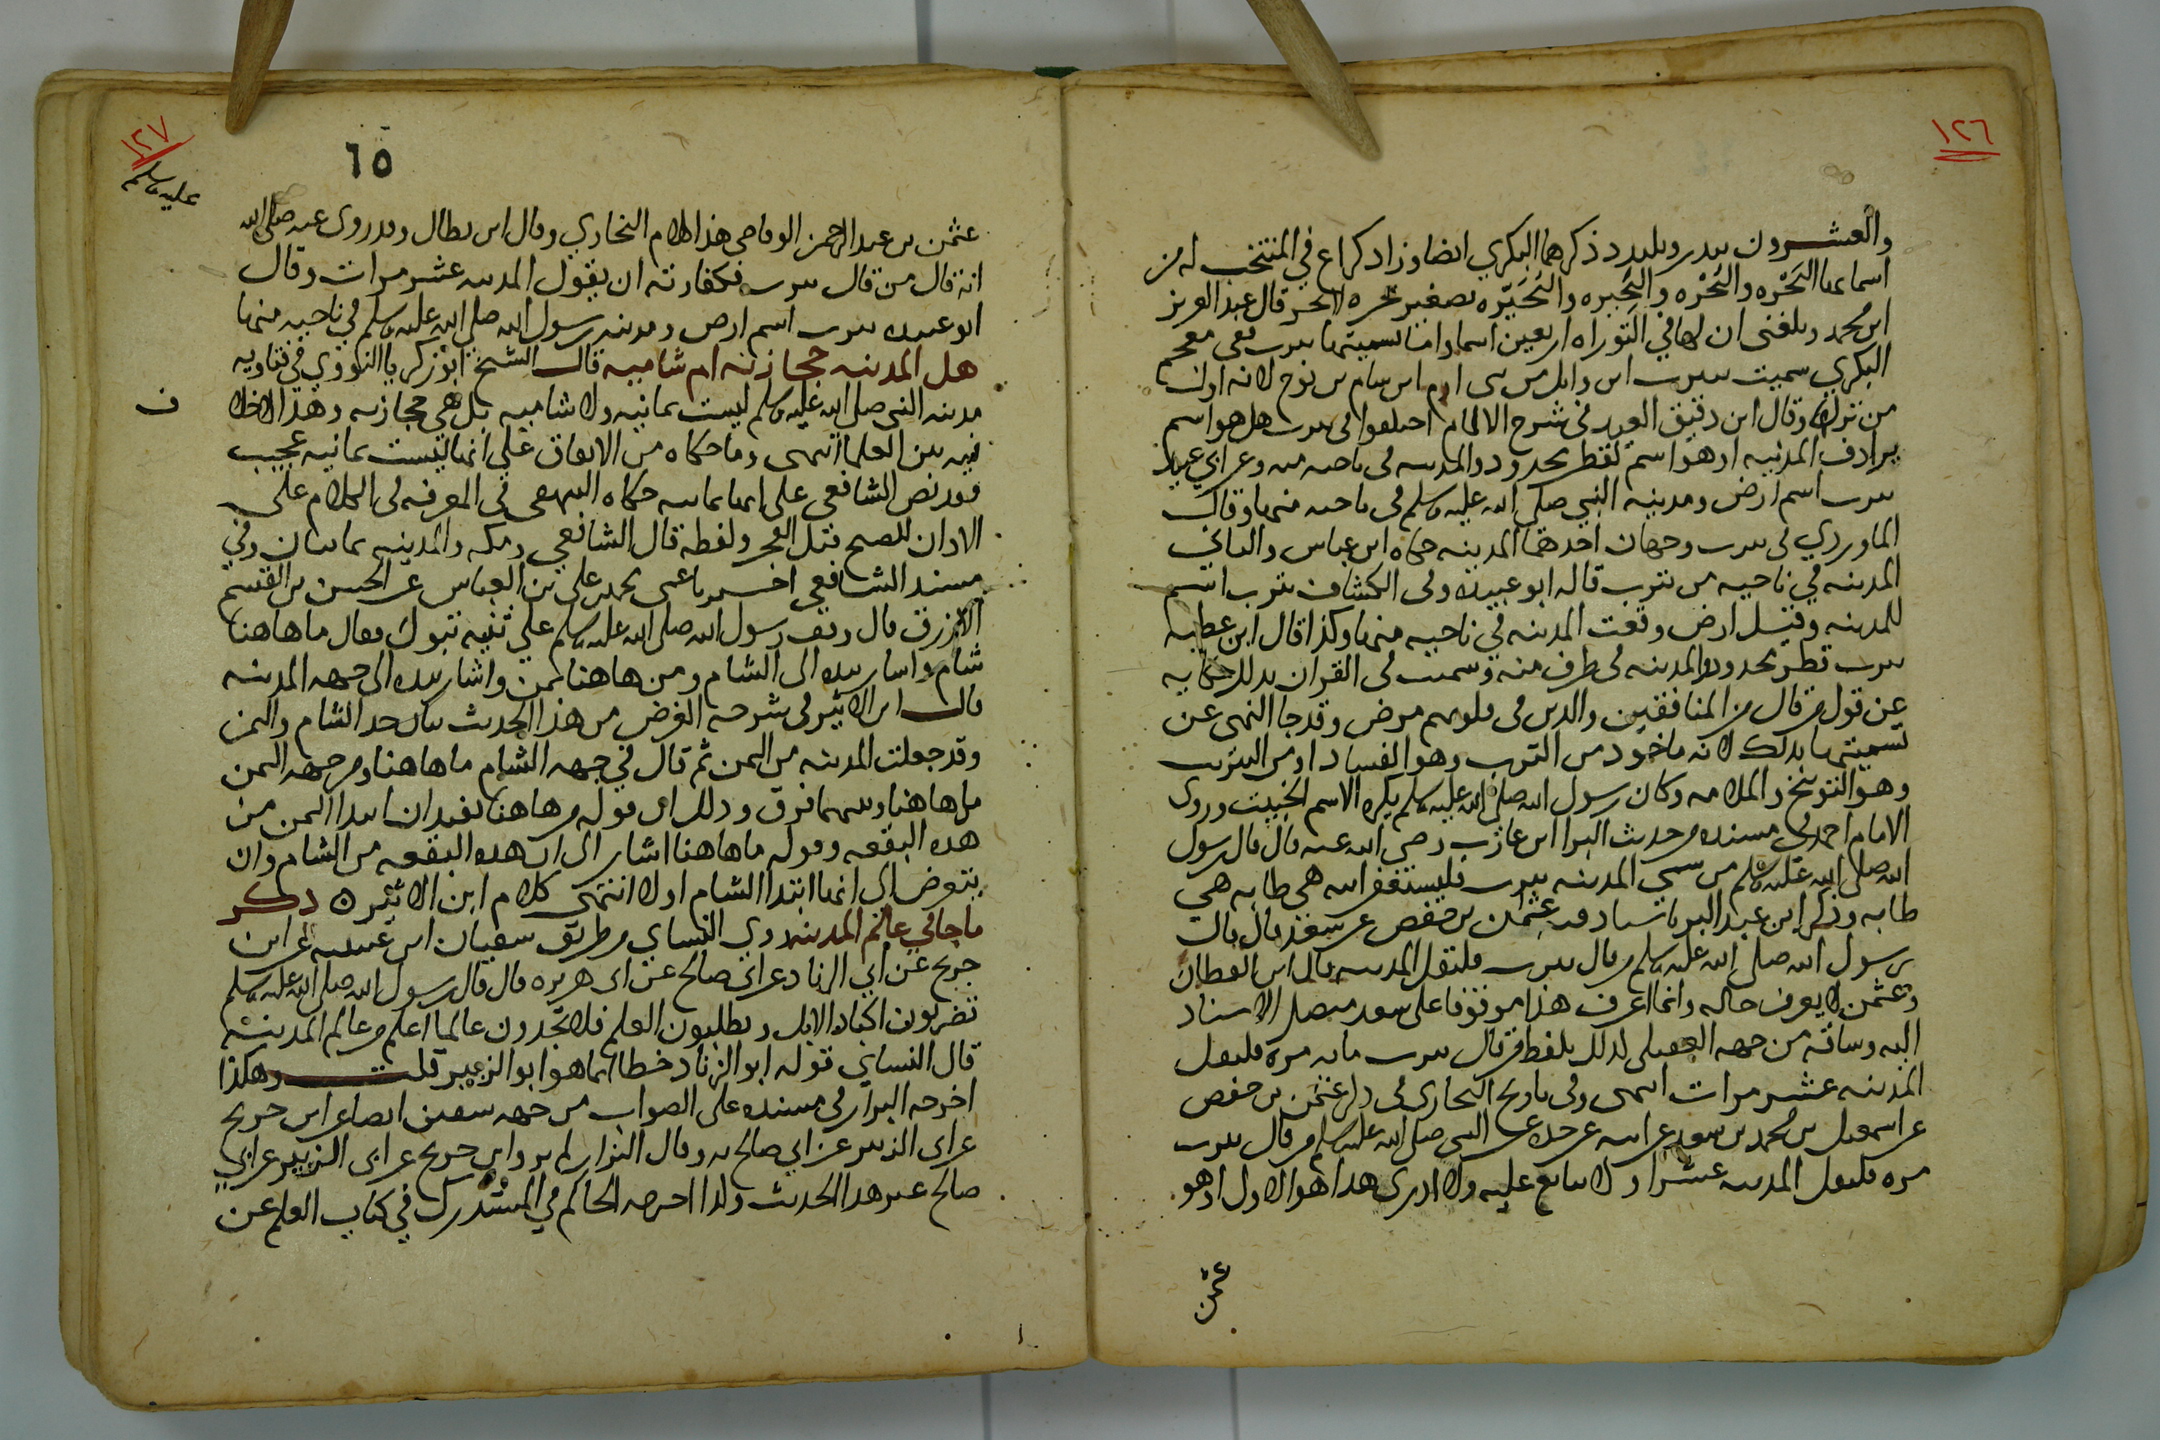 ١٢٦
والعشرون يندر ويليدد ذكرهما البكري ايضا وزاد كراع في المنتخب له من
اسمائها البَحْره والبُحْره والبَحِيره والبُحَيّره تصغير بحره البحر قال عبد العزيز
ابن محمد وبلغني ان لها في التوراه اربعين اسما واما تسميتها يثرب ففي معجم
البكري سميت بيثرب ابن وابل من بني ارم ابن سام بن نوح لانه اول
من نزلها وقال ابن دقيق العيد في شرح الالمام اختلفوا في يثرب هل هو اسم
يرادف المدينه او هو اسم لقطر محدود والمدينه في ناحيه منه وعن ابي عبيد
يثرب اسم ارض ومدينه النبي صلى الله عليه وسلم في ناحيه منها وقال
الماوردي في يثرب وجهان احدهما المدينه حكاه ابن عباس والثاني
المدينه في ناحيه من يثرب قاله ابو عبيده وفي الكشاف يثرب اسم
للمدينه وقيل ارض وقعت المدينه في ناحيه منها وكذا قال ابن عطيه
يثرب قطر محدود والمدينه في طرف منه وسميت في القران بذلك حكايه
عن قول من قال من المنافقين والذين في قلوبهم مرض وقد جا النهي عن
تسميتها بذلك لانه ماخوذ من الثرب وهو الفساد او من التثريب
وهو التوبيخ والملامه وكان رسول الله صلى الله عليه وسلم يكره الاسم الخبيث وروى
الامام احمد في مسنده من حديث البرا ابن عازب رضي الله عنه قال قال رسول
الله صلى الله عليه وسلم من سمي المدينه يثرب فليستغفر الله هي طابه هي
طابه وذكر ابن عبد البر باسناد فيه عثمان بن حفص عن سعد قال قال
رسول الله صلى الله عليه وسلم من قال يثرب فليقل المدينه قال ابن القطان
وعثمن لا يعرف حاله وانما اعرف هذا موقوفا على سعد متصل الاسناد
اليه وساقه من جهه العقيلي لذلك بلفظ من قال يثرب مايه مرة فليقل
المدينه عشر مرات انتهى وفي تاريخ البخاري في ذكر عثمن بن حفص
عن اسمعيل بن محمد بن سعد عن ابيه عن جده عن النبي صلى الله عليه وسلم من قال يثرب
مره فليقل المدينه عشرا ولا يتابع عليه ولا ادري هذا هو الاول او هو
عثمن
١٢٧
٦٥
عليه وسلم
عثمن بن عبد الرحمن الوقاصي هذا كلام البخاري وقال ابن بطال وقد روى عنه صلى الله
انه قال من قال يثرب فكفارته ان يقول المدينه عشر مرات وقال
ابو عبيده يثرب اسم ارض ومدينه رسول الله صلى الله عليه وسلم في ناحيه منها
هل المدينه حجازيه ام شاميه قال الشيخ ابو زكريا النووي في فتاويه
مدينه النبي صلى الله عليه وسلم ليست يمانيه ولا شاميه بل هي حجازيه وهذا لا خلاف
فيه بين العلما انتهى وما حكاه من الاتفاق على انها ليست يمانيه عجيب
فقد نص الشافعي على انها يمانيه حكاه البيهقي في المعرفه في الكلام على
الاذان للصبح قبل الفجر ولفظه قال الشافعي ومكه والمدينه يمانيتان وفي
مسند الشافعي اخبرنا عمي محمد بن علي بن العباس عن الحسن بن القسم
الازرقي قال وقف رسول الله صلى الله عليه وسلم على ثنيه تبوك فقال ما هاهنا
شام واشار بيده الى الشام ومن هاهنا يمن واشار بيده الى جهه المدينه
قال ابن الاثير في شرحه الغرض من هذا الحديث بيان حد الشام واليمن
وقد جعلت المدينه من اليمن ثم قال في جهه الشام ما هاهنا ومن جهه اليمن
من هاهنا وبينهما فرق وذلك ان قوله من هاهنا يفيد ان ابتدا اليمن من
هذه البقعه وقوله ما هاهنا اشار الى ان هذه البقعه من الشام وان
يتعرض الى انها ابتدا الشام اولا انتهى كلام ابن الاثير ٥ ذكر
ما جا في عالم المدينه روي النساي من طريق سفيان ابن عيينه عن ابن
جريج عن ابي الزناد عن ابي صالح عن ابي هريره قال قال رسول الله صلى الله عليه وسلم
تضربون اكباد الابل وتطلبون العلم فلا تجدون عالما اعلم من عالم المدينه
قال النساي قوله ابو الزناد خطا انما هو ابو الزبير قلت وهكذا
اخرجه البزار في مسنده على الصواب من جهه سفين ايضا عن ابن جريج
عن ابي الزبير عن ابي صالح به وقال البزار لم يرو ابن جريج عن ابي الزبير عن ابي
صالح غير هذا الحديث وكذا اخرجه الحاكم في المستدرك في كتاب العلم عن
ف